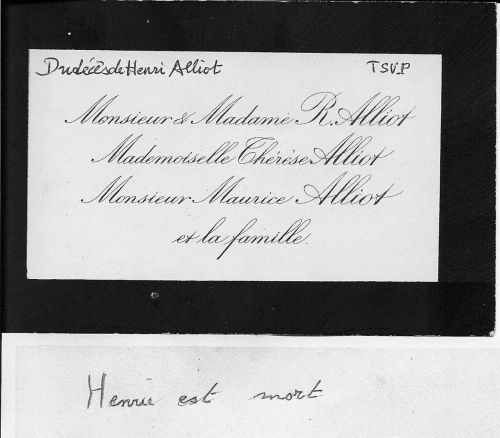 Du décès de Henri Alliot TSVP
Monsieur & Madame R. Alliot
Mademoiselle Thérèse Alliot
Monsieur Maurice Alliot
et la famille.
Henri est mort